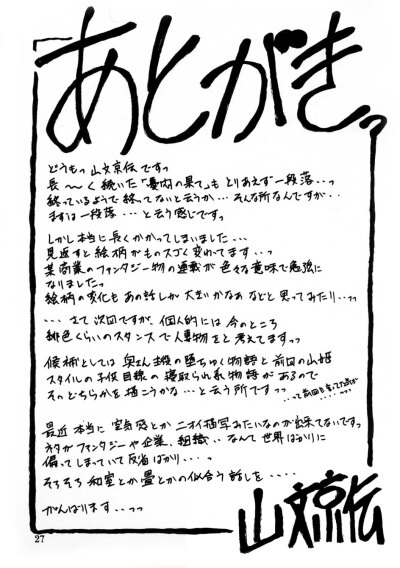 あとがきっ
どうもっ 山文京伝ですっ
長〜〜く続いた「憂内の果て」も とりあえず一段落..っ
終っているようで終ってないと云うか... そんな所なんですが..
まずは一段落...と云う感じですっ
しかし本当に長くかかってしまいました...
見返すと絵柄がものスゴく変わてます..っ
某商業のファンタジー物の連載が色々な意味で勉強に
なりましたっ
絵柄の変化もあの話しが大きいかなぁ などと思ってみたり..っっ
... さて次回ですが、個人的には 今のところ
緋色くらいのスタンスで人妻物をと 考えてますっっ
候補としては奥さん主役の堕ちゆく物語と前回の山姫
スタイルの子供目線の寝取られ系物語があるので
そのどちらかを描こうかな...と云う所ですっっ
最近 本当に空気感とかニオイ描写みたいなのが出来てないですっ
ネタがファンタジーや企業、組織..なんて世界ばかりに
偏ってしまっていて反省ばかり...っ
そろそろ和室とか畳とかの似合う話しを....
がんばります..っっ
山文京伝
27